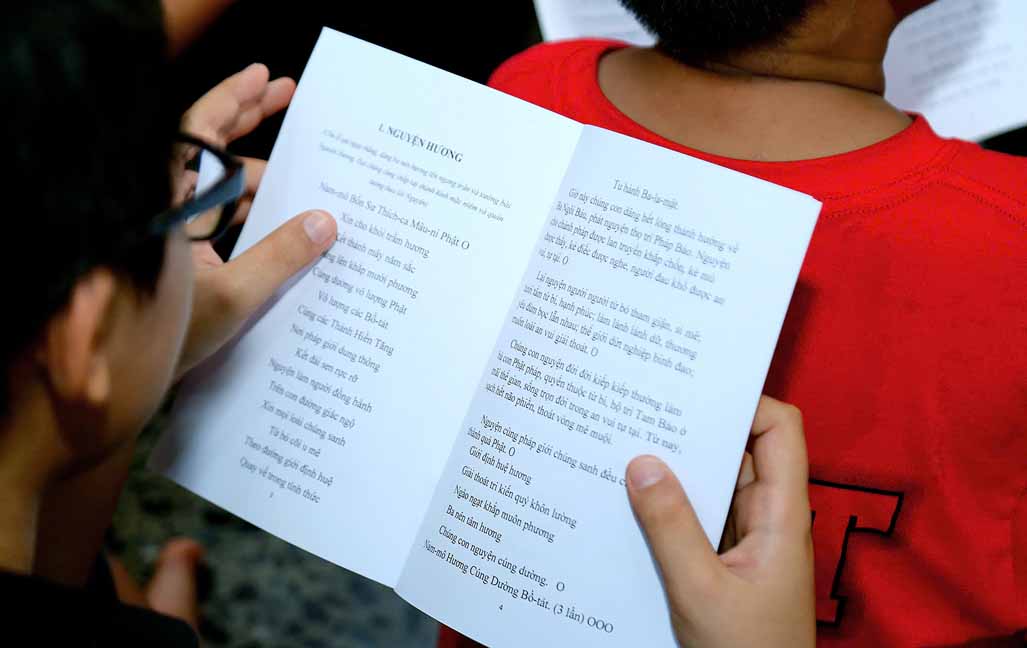 I. NGUYỆN HƯƠNG
Nguyện hương. Đại chúng cùng chắp tay thành kính mặc niệm và quán
tưởng theo lời Nguyện)
Nam-mô Bổn Sư Thích-ca Mâu-ni Phật O
Xin cho khói trầm hương
Kết thành mây năm sắc
lên khắp mười phương
Cúng dường vô lượng Phật
Vô lượng các Bồ-tát
Cùng các Thánh Hiền Tăng
Nơi pháp giới dung thông
Kết đài sen rực rỡ
Nguyện làm người đồng hành
Trên con đường giác ngộ
Xin mọi loài chúng sanh
Từ bỏ cõi u mê
Theo đường giới định huệ
Quay về trong tỉnh thức
3
Tu hành Ba-la-mật.
Giờ này chúng con dâng hết lòng thành hướng về
Ba Ngôi Báu, phát nguyện thọ trì Pháp Bảo. Nguyện
cho chánh pháp được lan truyền khắp chốn, kẻ mù
được thấy, kẻ điếc được nghe, người đau khổ được an
vui, tự tại. O
Lại nguyện người người từ bỏ tham giận, si mê;
tươi tâm từ bi, hạnh phúc; làm lành lánh dữ, thương
yêu đùm bọc lẫn nhau; thế giới dứt nghiệp binh đao;
muôn loài an vui giải thoát. O
Chúng con nguyện đời đời kiếp kiếp thường làm
là con Phật pháp, quyến thuộc từ bi, hộ trì Tam Bảo ở
nơi thế gian, sống trọn đời trong an vui tự tại. Từ nay,
sạch hết não phiền, thoát vòng mê muội.
Nguyện cùng pháp giới chúng sanh đều
thành quả Phật. O
Giới định huệ hương
Giải thoát tri kiến quý khôn lường
Ngào ngạt khắp muôn phương
Ba nén tâm hương
Chúng con nguyện cúng dường. O
Nam-mô Hương Cúng Dường Bồ-tát. (3 lần) OOO
4